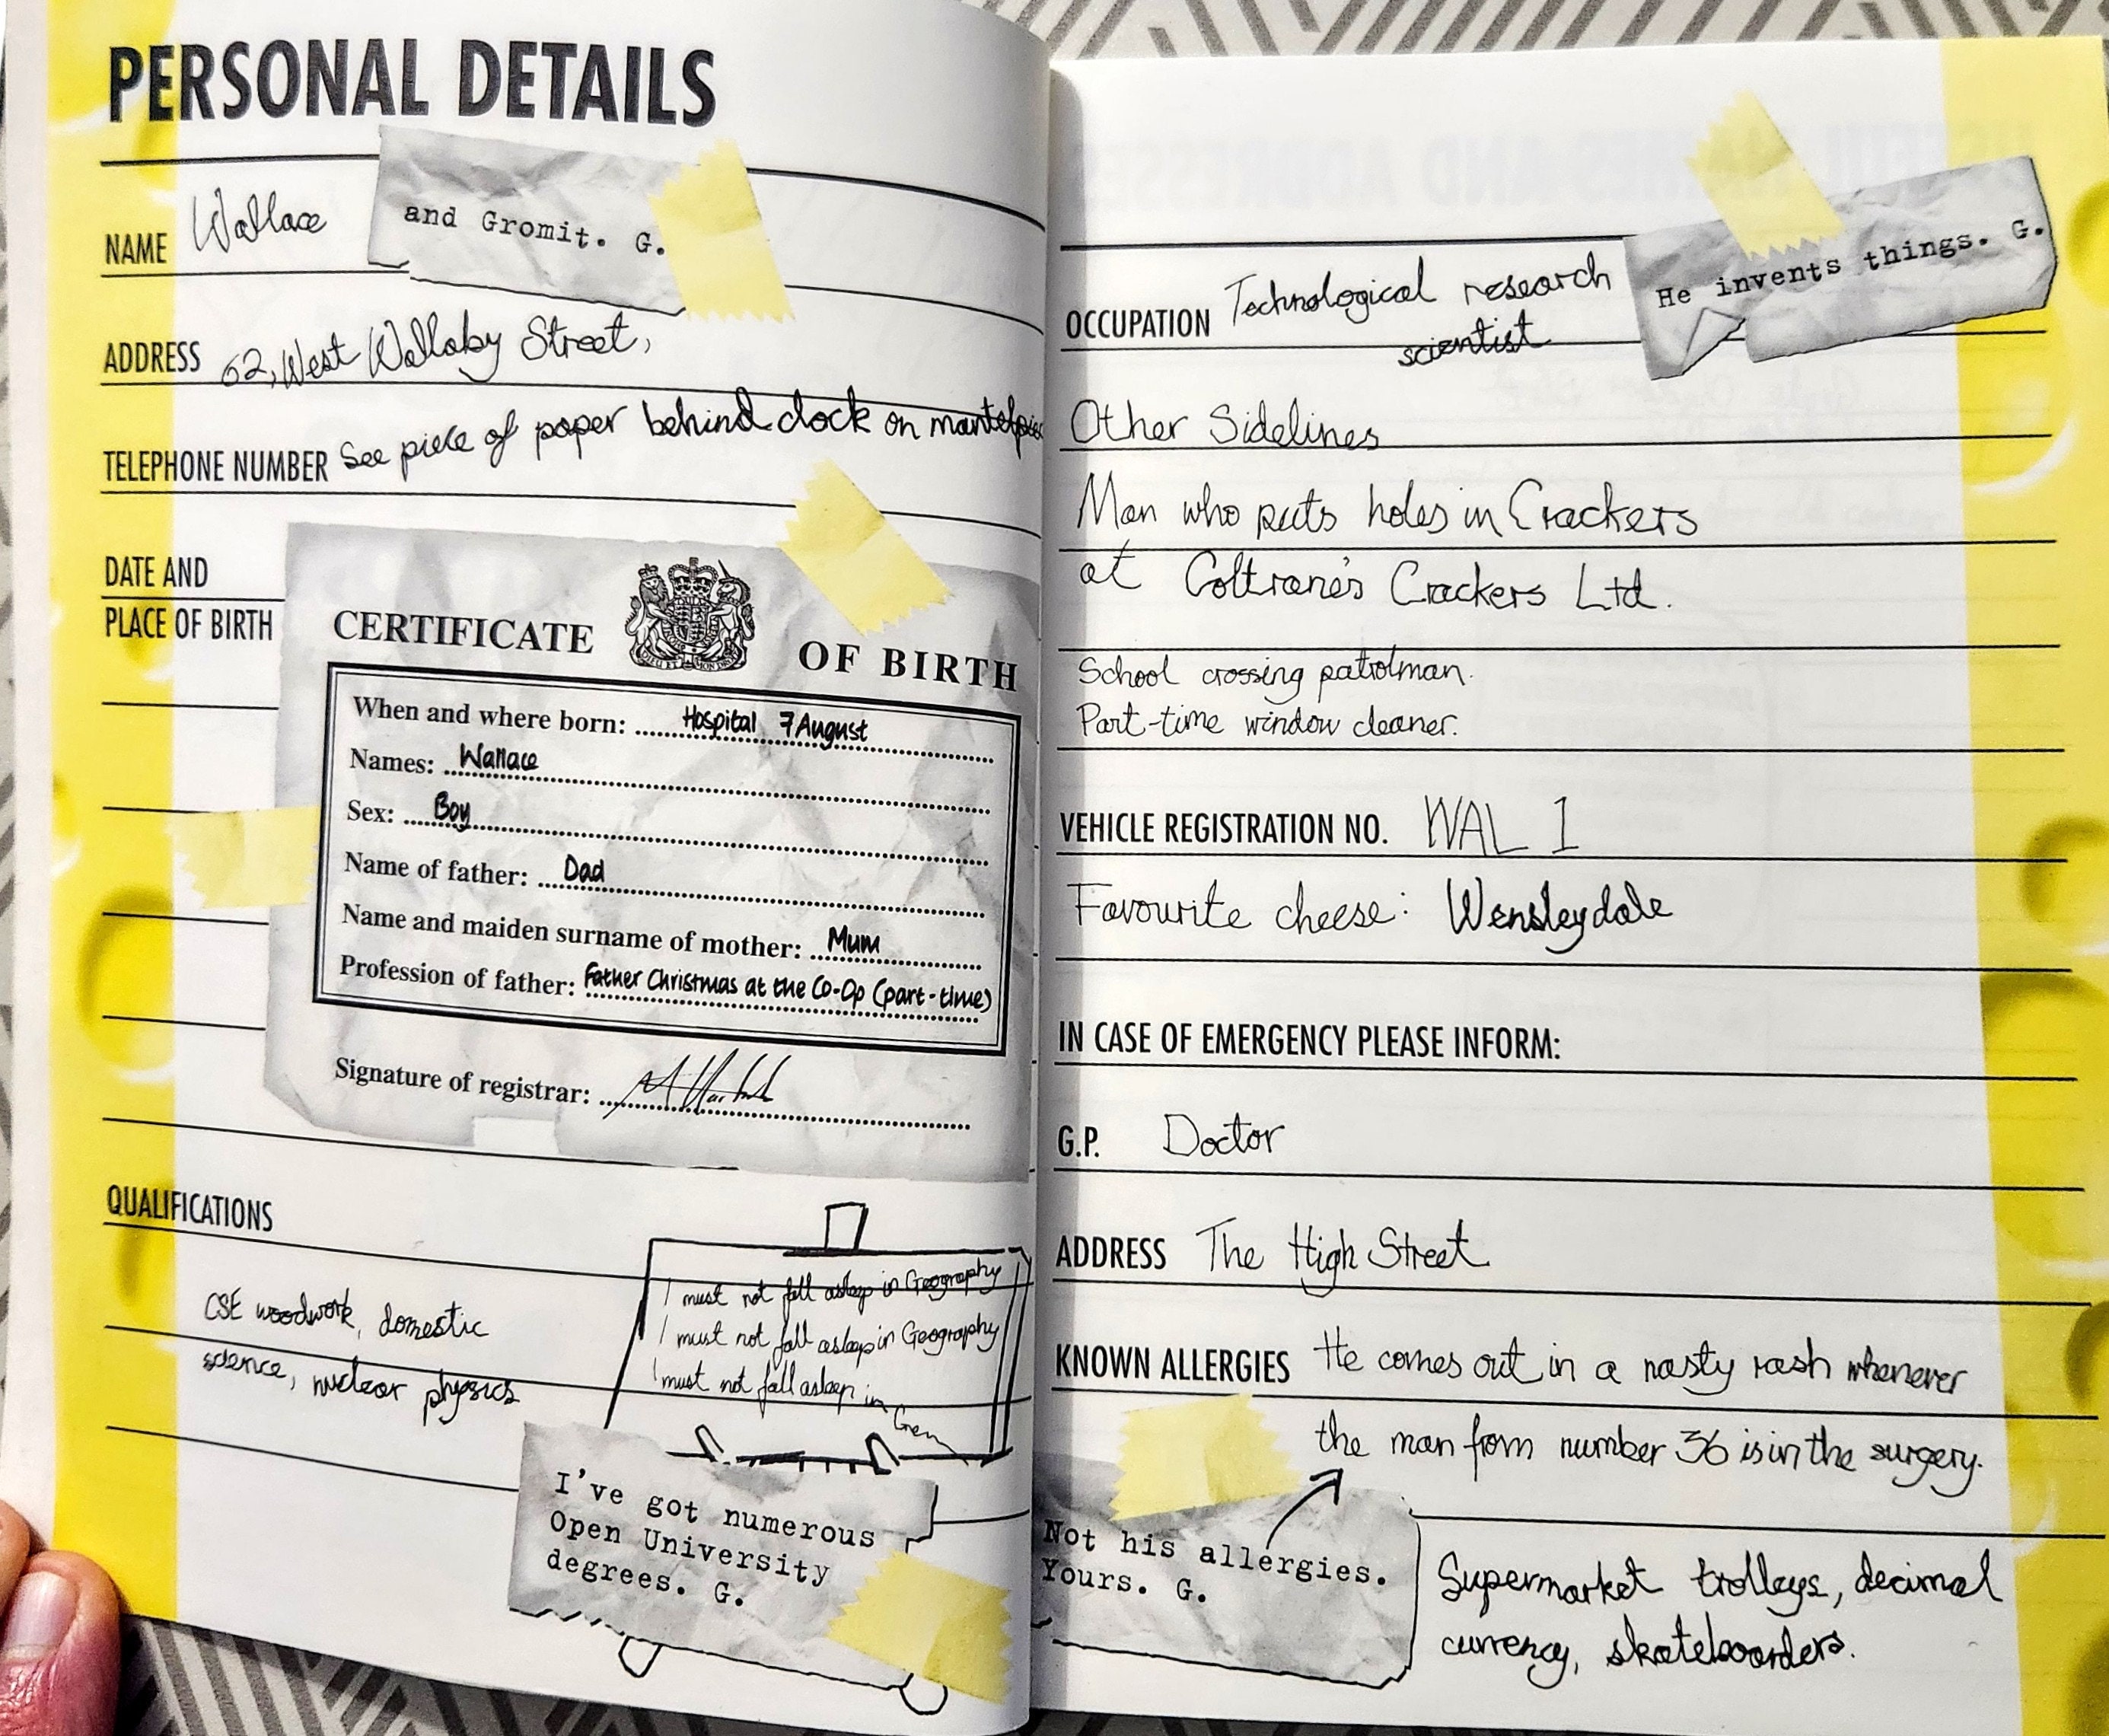 PERSONAL DETAILS
NAME Wallace
and Gromit. G.
ADDRESS 62, West Wallaby Street,
TELEPHONE NUMBER See piece of paper behind clock on mantelpiece
DATE AND
PLACE OF BIRTH
CERTIFICATE OF BIRTH
DIEU ET MON DROIT
When and where born: Hospital 7 August
Names: Wallace
Sex: Boy
Name of father: Dad
Name and maiden surname of mother: Mum
Profession of father: Father Christmas at the Co-Op (part-time)
Signature of registrar:
QUALIFICATIONS
CSE woodwork, domestic
science, nuclear physics
I must not fall asleep in Geography
I must not fall asleep in Geography
I must not fall asleep in
I've got numerous
Open University
degrees. G.
OCCUPATION Technological research
scientist
He invents things. G.
Other Sidelines
Man who puts holes in Crackers
at Coltrane's Crackers Ltd.
School crossing patrolman.
Part-time window cleaner.
VEHICLE REGISTRATION NO. WAL 1
Favourite cheese: Wensleydale
IN CASE OF EMERGENCY PLEASE INFORM:
G.P. Doctor
ADDRESS The High Street
KNOWN ALLERGIES He comes out in a nasty rash whenever
the man from number 36 is in the surgery.
Not his allergies.
Yours. G.
Supermarket trolleys, decimal
currency, skateboarders.